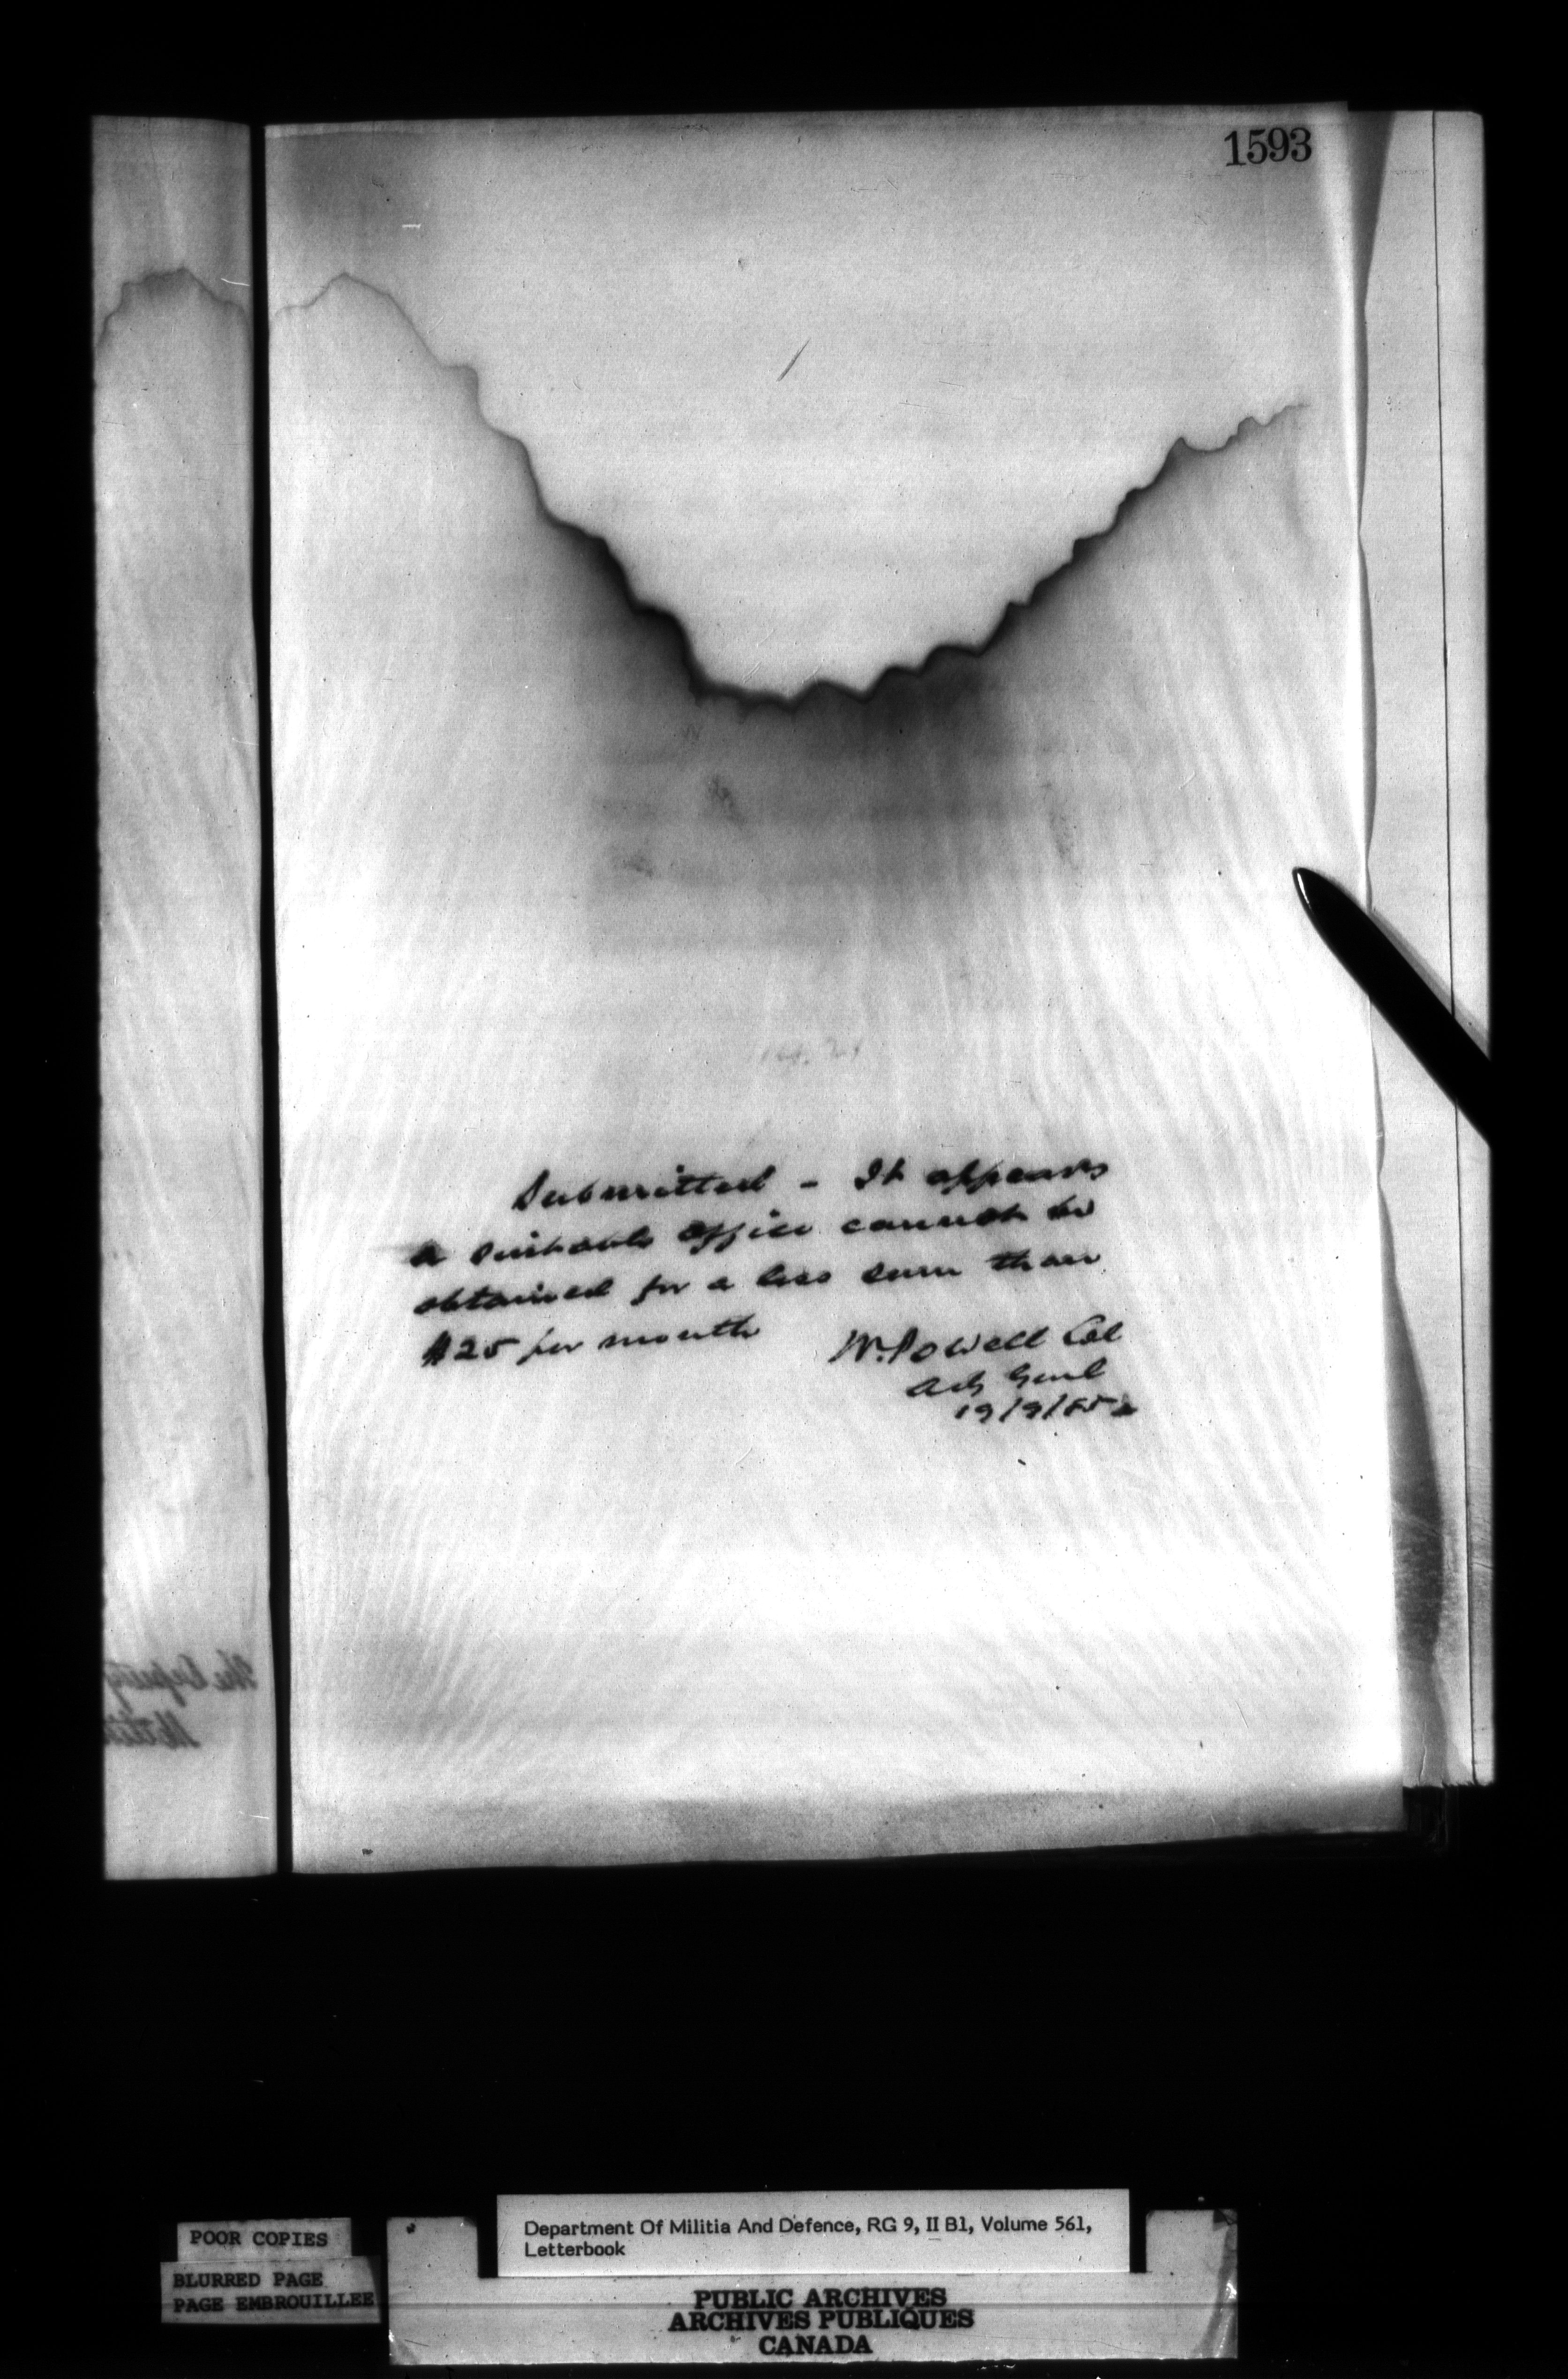 1593
Submitted - It appears
a suitable office cannot be
obtained for a less sum than
$25 per month
W. Powell Col
Adj Genl
19/9/85
The Deputy
POOR COPIES
BLURRED PAGE
PAGE EMBROUILLEE
Department Of Militia And Defence, RG 9, II B1, Volume 561,
Letterbook
PUBLIC ARCHIVES
ARCHIVES PUBLIQUES
CANADA